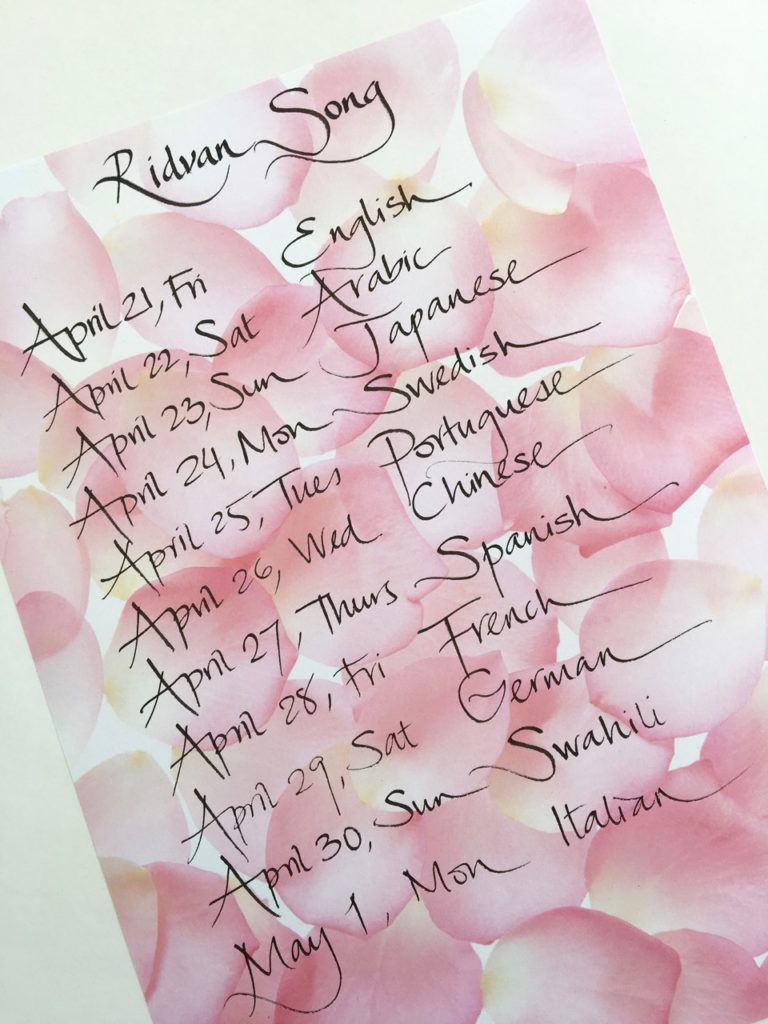 Ridvan Song
April 21, Fri English
April 22, Sat Arabic
April 23, Sun Japanese
April 24, Mon Swedish
April 25, Tues Portuguese
April 26, Wed Chinese
April 27, Thurs Spanish
April 28, Fri French
April 29, Sat German
April 30, Sun Swahili
May 1, Mon Italian